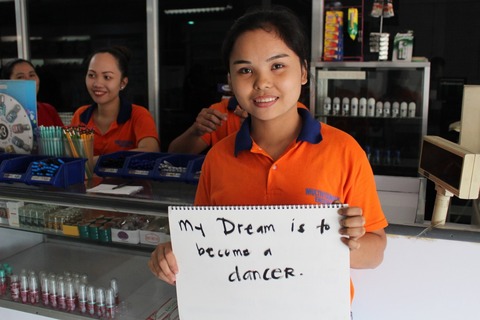 My Dream is to
become a
dancer.